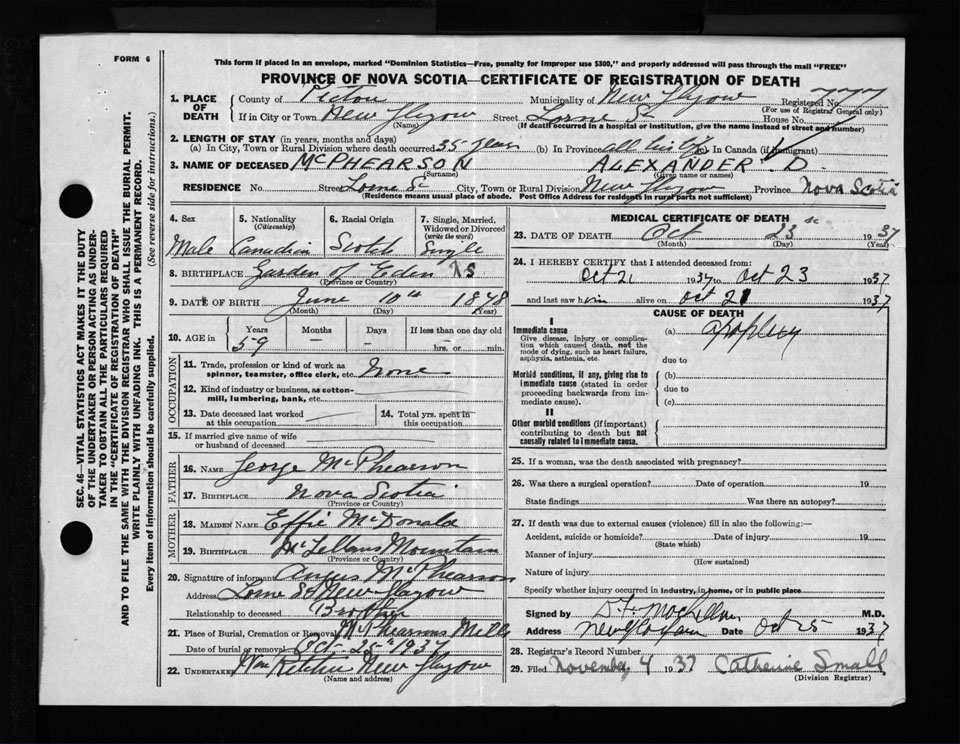 FORM 6
This form if placed in an envelope, marked "Dominion Statistics—Free, penalty for improper use $300," and properly addressed will pass through the mail "FREE"
PROVINCE OF NOVA SCOTIA—CERTIFICATE OF REGISTRATION OF DEATH
1. PLACE OF DEATH County of Pictou Municipality of New Glasgow Registered No. 777
(For use of Registrar General only)
If in City or Town New Glasgow Street Lorne St House No.
(Name) (If death occurred in a hospital or institution, give the name instead of street and number)
2. LENGTH OF STAY (in years, months and days)
(a) In City, Town or Rural Division where death occurred 35 years (b) In Province all his life (c) In Canada (if immigrant)
3. NAME OF DECEASED McPHEARSON ALEXANDER D
(Surname) (Given name or names)
RESIDENCE No. Street Lorne St City, Town or Rural Division New Glasgow Province Nova Scotia
(Residence means usual place of abode. Post Office Address for residents in rural parts not sufficient)
4. Sex 5. Nationality (Citizenship) 6. Racial Origin 7. Single, Married, Widowed or Divorced (write the word)
Male Canadian Scotch Single
8. BIRTHPLACE Garden of Eden N S
(Province or Country)
9. DATE OF BIRTH June 10th 1878
(Month) (Day) (Year)
10. AGE in Years Months Days If less than one day old
59 — — hrs. or min.
OCCUPATION
11. Trade, profession or kind of work as spinner, teamster, office clerk, etc. None
12. Kind of industry or business, as cotton-mill, lumbering, bank, etc.
13. Date deceased last worked at this occupation
14. Total yrs. spent in this occupation
15. If married give name of wife or husband of deceased
FATHER
16. NAME George McPhearson
17. BIRTHPLACE Nova Scotia
(Province or Country)
MOTHER
18. MAIDEN NAME Effie McDonald
19. BIRTHPLACE McLellans Mountain
(Province or Country)
20. Signature of informant Angus McPhearson
Address Lorne St New Glasgow
Relationship to deceased Brother
21. Place of Burial, Cremation or Removal McPhearsons Mills
Date of burial or removal Oct. 25th 1937
22. UNDERTAKER Wm Ritchie New Glasgow
(Name and address)
MEDICAL CERTIFICATE OF DEATH
23. DATE OF DEATH Oct 23 1937
(Month) (Day) (Year)
24. I HEREBY CERTIFY that I attended deceased from:
Oct 21 1937 to Oct 23 1937
and last saw him alive on Oct 21 1937
CAUSE OF DEATH
I
Immediate cause (a) apoplexy
Give disease, injury or complication which caused death, not the mode of dying, such as heart failure, asphyxia, asthenia, etc.
due to
Morbid conditions, if any, giving rise to immediate cause (stated in order proceeding backwards from immediate cause).
(b)
due to
(c)
II
Other morbid conditions (if important) contributing to death but not causally related to immediate cause.
25. If a woman, was the death associated with pregnancy?
26. Was there a surgical operation? Date of operation 19
State findings Was there an autopsy?
27. If death was due to external causes (violence) fill in also the following:—
Accident, suicide or homicide? Date of injury 19
(State which)
Manner of injury
(How sustained)
Nature of injury
Specify whether injury occurred in industry, in home, or in public place
Signed by M.D.
Address New Glasgow Date Oct 25 1937
28. Registrar's Record Number
29. Filed November 4 1937 Catherine Small
(Division Registrar)
SEC. 46—VITAL STATISTICS ACT MAKES IT THE DUTY
OF THE UNDERTAKER OR PERSON ACTING AS UNDER-
TAKER TO OBTAIN ALL THE PARTICULARS REQUIRED
IN THE "CERTIFICATE OF REGISTRATION OF DEATH"
AND TO FILE THE SAME WITH THE DIVISION REGISTRAR WHO SHALL ISSUE THE BURIAL PERMIT.
WRITE PLAINLY WITH UNFADING INK. THIS IS A PERMANENT RECORD.
Every item of information should be carefully supplied. (See reverse side for instructions.)